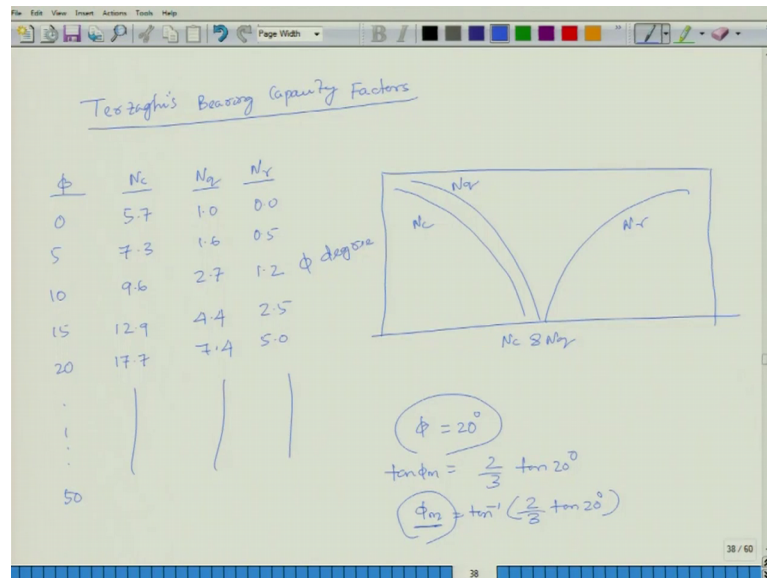 File Edit View Insert Actions Tools Help
Page Width
B I
Terzaghi's Bearing Capacity Factors
φ Nc Nq Nr
0 5.7 1.0 0.0
5 7.3 1.6 0.5
10 9.6 2.7 1.2
15 12.9 4.4 2.5
20 17.7 7.4 5.0
50
φ degree
Nq
Nc
Nr
Nc & Nq
φ = 20°
tanφm = 2/3 tan 20°
φm = tan⁻¹ (2/3 tan 20°)
38 / 60
38